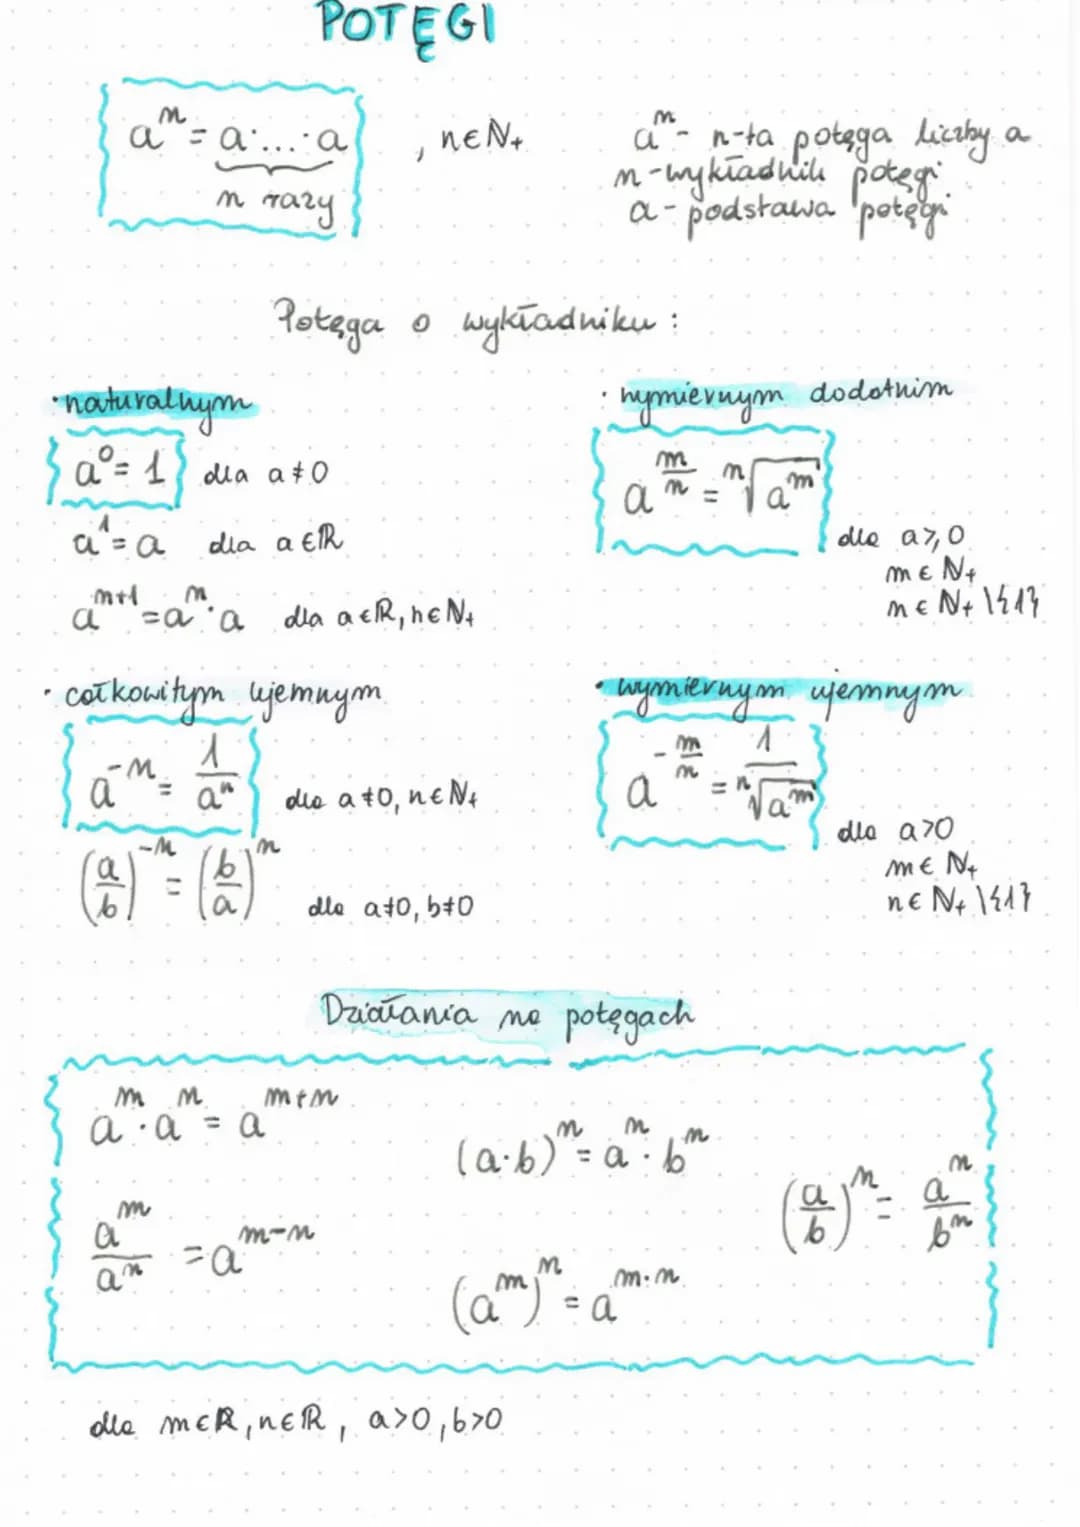 POTĘGI
aⁿ = a·...·a , n∈N₊
n razy
aⁿ - n-ta potęga liczby a
n - wykładnik potęgi
a - podstawa potęgi
Potęga o wykładniku :
· naturalnym
a⁰ = 1 dla a ≠ 0
a¹ = a dla a ∈ ℝ
aⁿ⁺¹ = aⁿ·a dla a ∈ ℝ, n ∈ N₊
· całkowitym ujemnym
a⁻ⁿ = 1/aⁿ dla a ≠ 0, n ∈ N₊
(a/b)⁻ⁿ = (b/a)ⁿ dla a≠0, b≠0
· wymiernym dodatnim
a^(m/n) = ⁿ√(aᵐ)
dla a ⩾ 0
m ∈ N₊
n ∈ N₊ \ {1}
· wymiernym ujemnym
a^(-m/n) = 1/ⁿ√(aᵐ)
dla a > 0
m ∈ N₊
n ∈ N₊ \ {1}
Działania na potęgach
aᵐ · aⁿ = aᵐ⁺ⁿ
aᵐ/aⁿ = aᵐ⁻ⁿ
(a·b)ⁿ = aⁿ · bⁿ
(aᵐ)ⁿ = aᵐ·ⁿ
(a/b)ⁿ = aⁿ/bⁿ
dla m∈ℝ, n∈ℝ, a>0, b>0